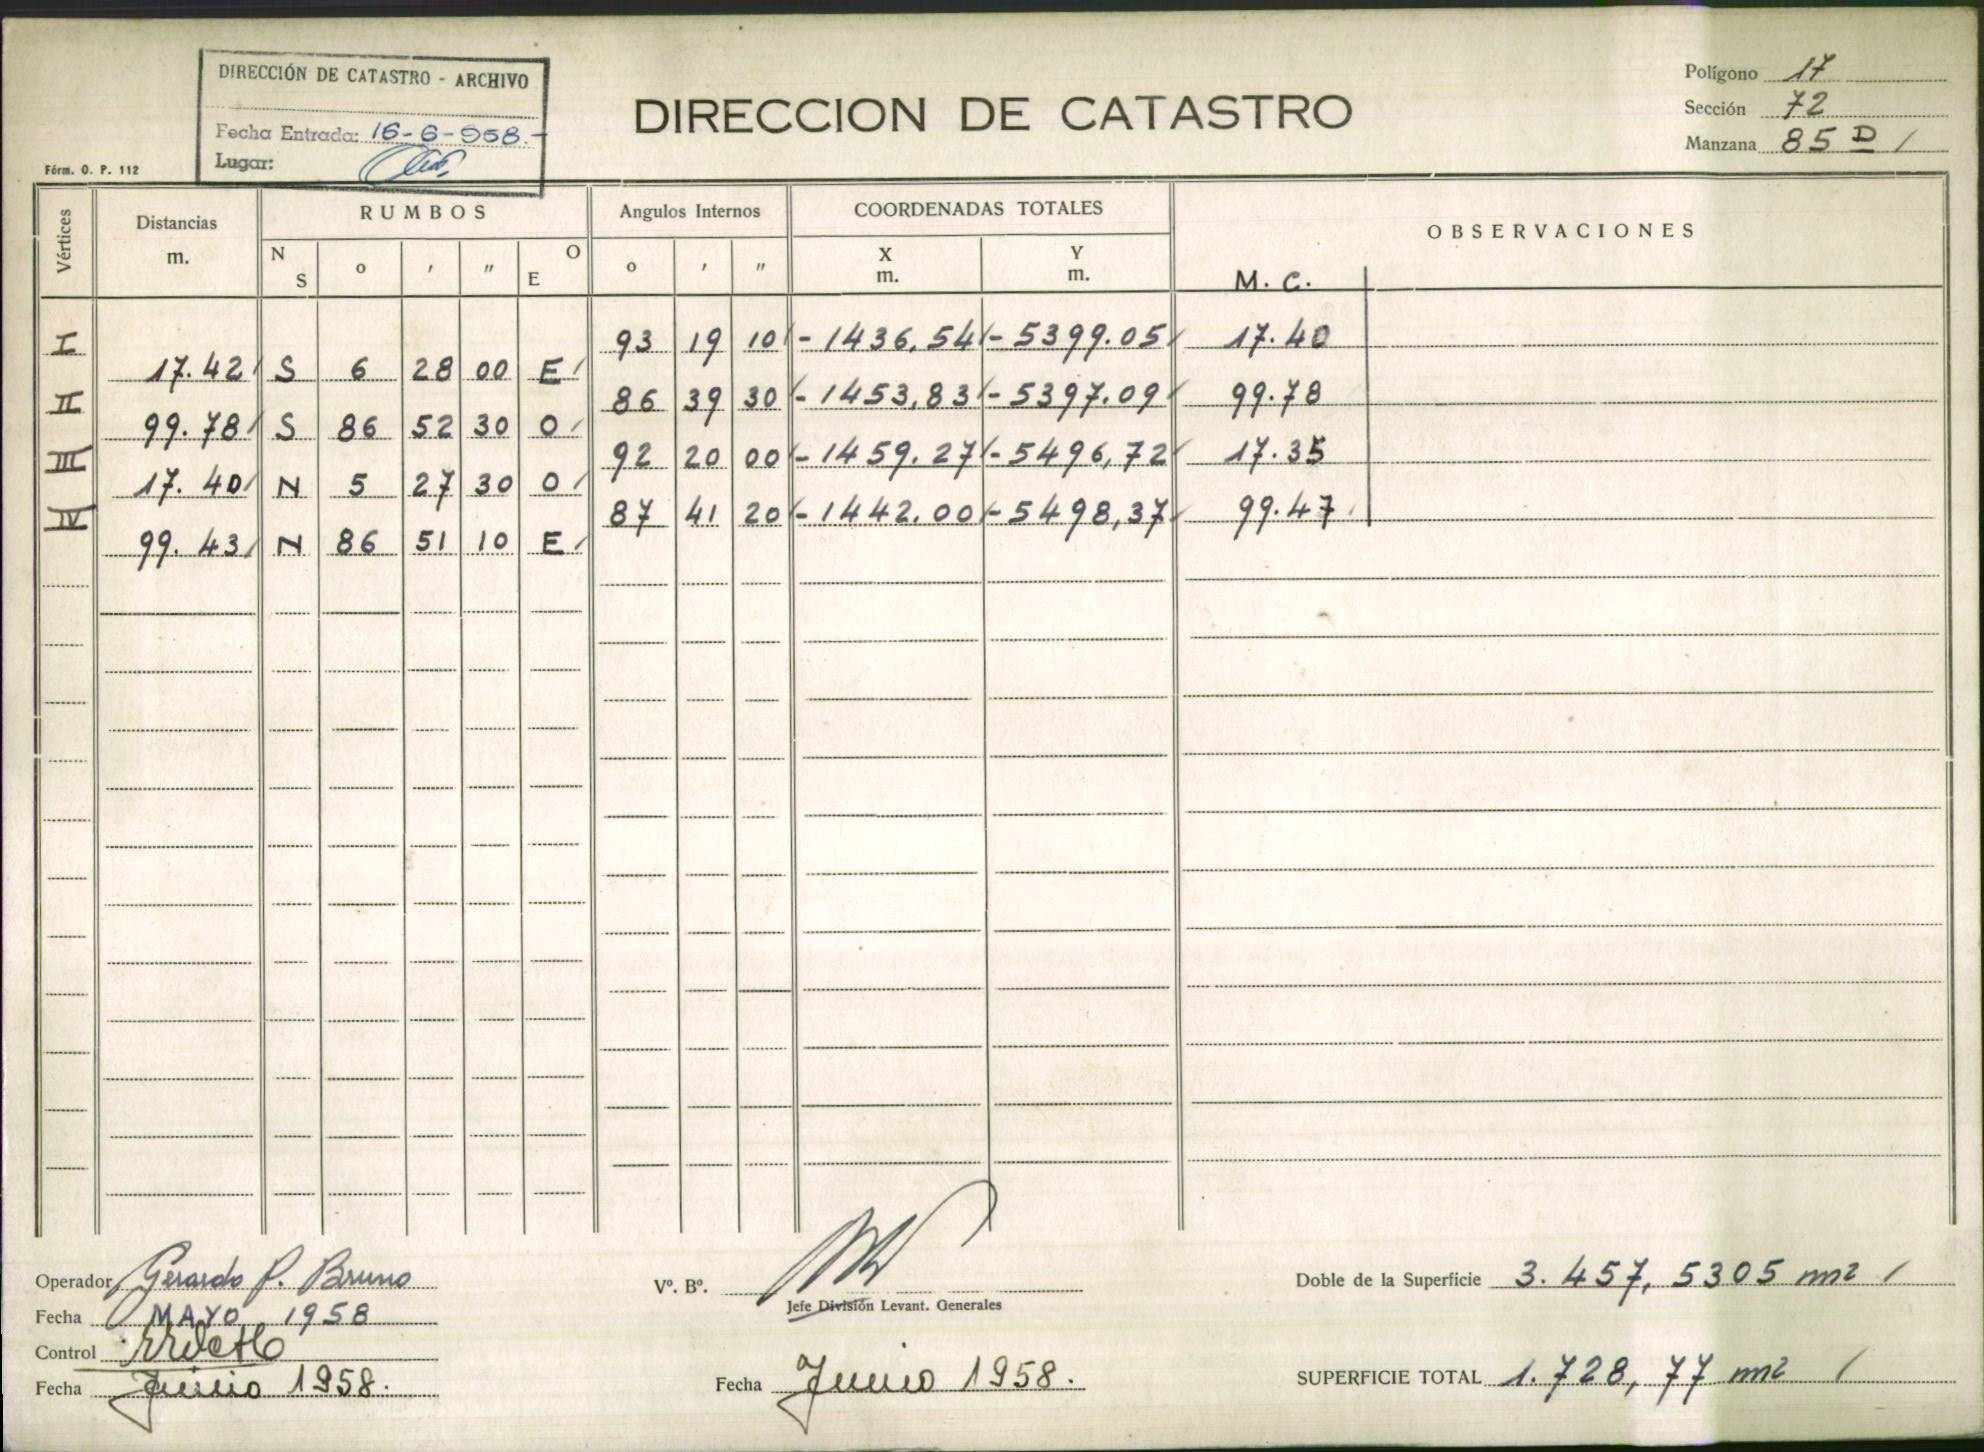 DIRECCIÓN DE CATASTRO - ARCHIVO
Fecha Entrada: 16-6-958.-
Lugar:
Férm. O. P. 112
DIRECCION DE CATASTRO
Polígono 17
Sección 72
Manzana 85 D /
Vértices
Distancias
m.
RUMBOS
N S ° ' " O E
Angulos Internos
° ' "
COORDENADAS TOTALES
X
m.
Y
m.
OBSERVACIONES
M. C.
I 93 19 10 - 1436,54 - 5399.05 17.40
17.42 S 6 28 00 E
II 86 39 30 - 1453,83 - 5397.09 99.78
99.78 S 86 52 30 O
III 92 20 00 - 1459.27 - 5496,72 17.35
17.40 N 5 27 30 O
IV 87 41 20 - 1442.00 - 5498,37 99.47
99.43 N 86 51 10 E
Operador Gerardo P. Bruno
Fecha MAYO 1958
Control
Fecha Junio 1958.
Vº. Bº.
Jefe División Levant. Generales
Fecha Junio 1958.
Doble de la Superficie 3.457,5305 m2 /
SUPERFICIE TOTAL 1.728,77 m2 /